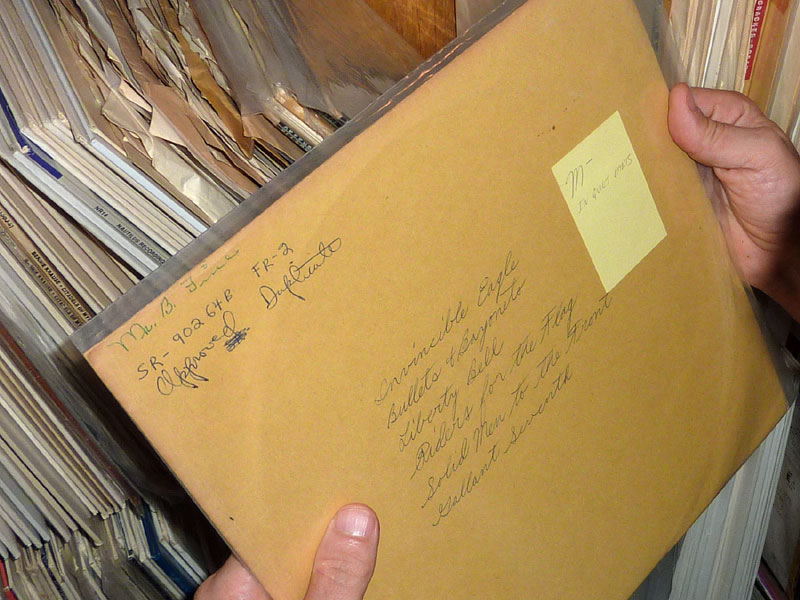 Mr. B. Fine
SR-90264B FR-2
Approved Duplicate
Invincible Eagle
Bullets & Bayonets
Liberty Bell
Riders for the Flag
Solid Men to the Front
Gallant Seventh
M-
NAUTILUS RECORDING